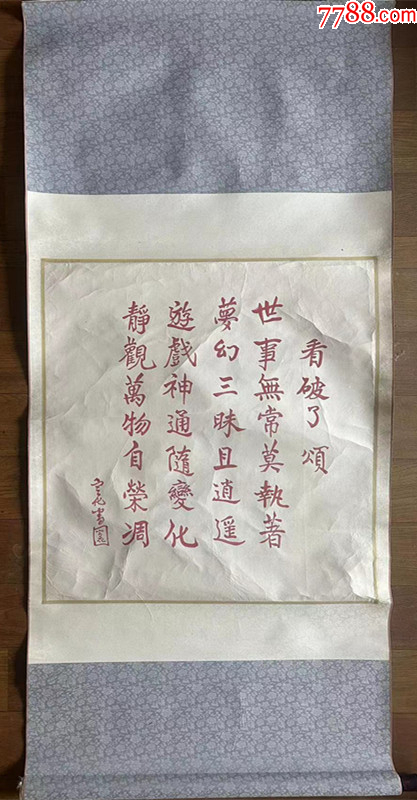 7788.com
看破了頌
世事無常莫執著
夢幻三昧且逍遥
遊戲神通隨變化
靜觀萬物自榮凋